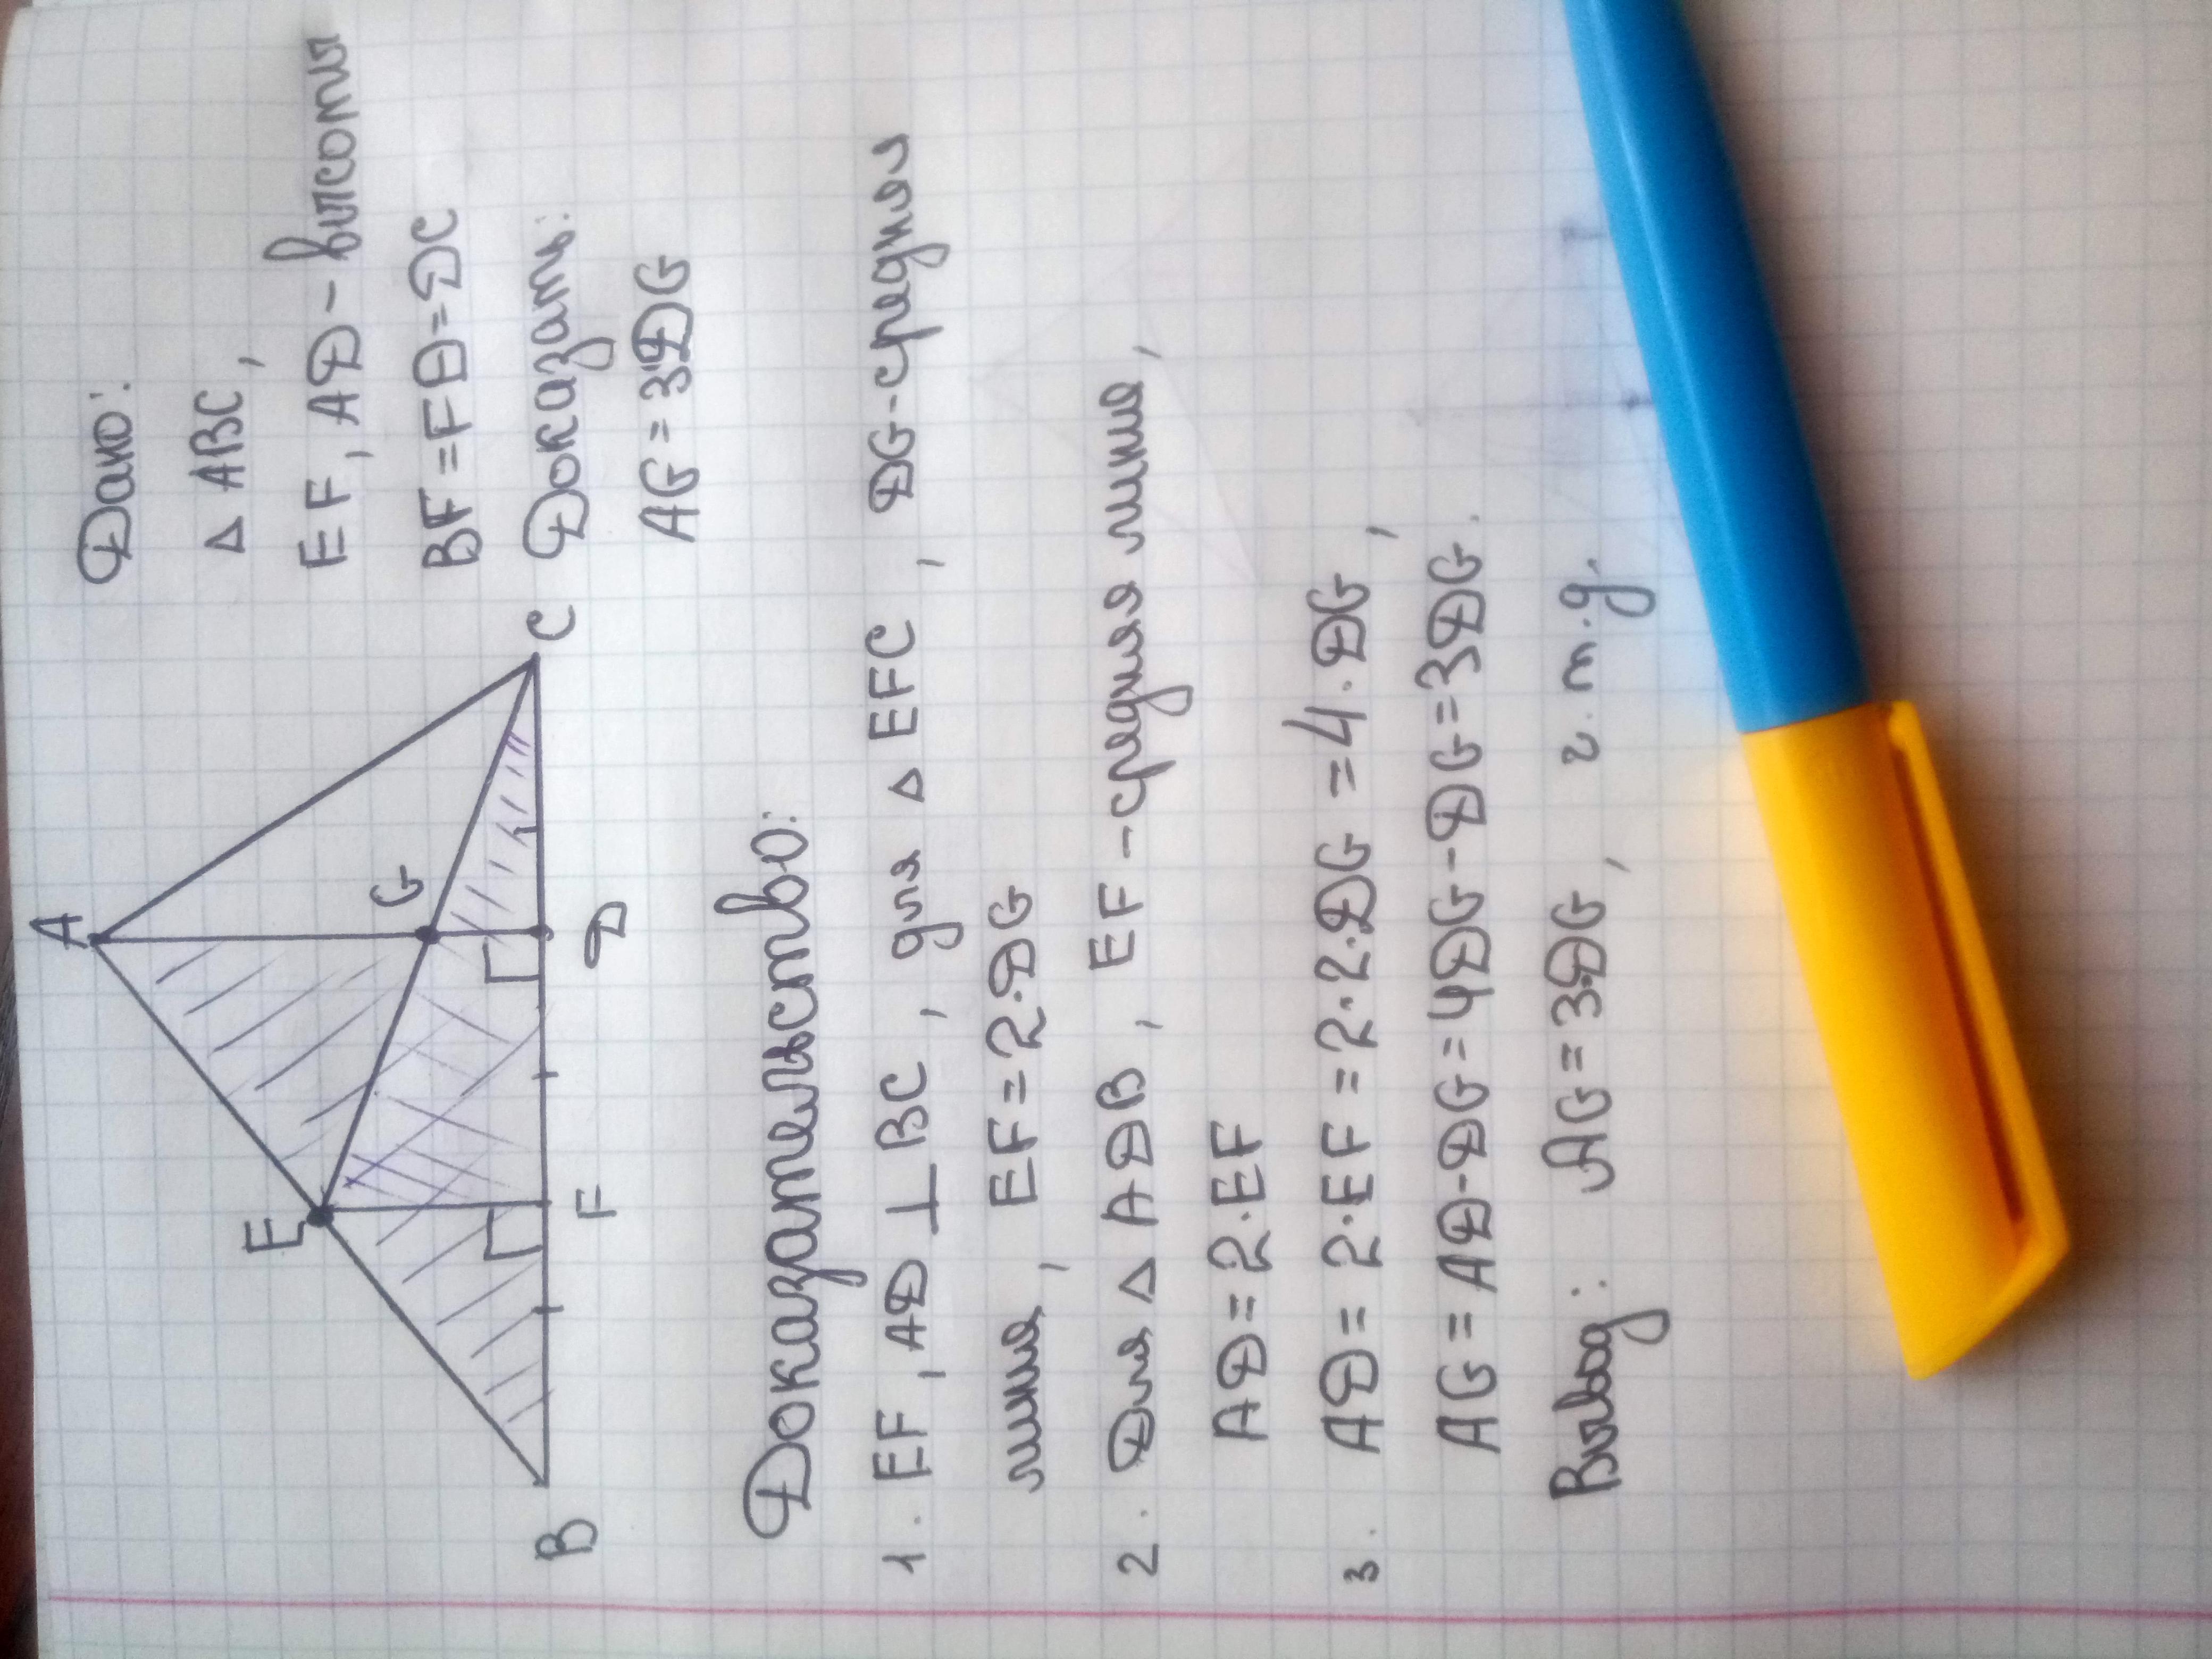 A
E
G
B
F
D
C
Дано:
△ ABC,
EF, AD - высоты
BF = FD = DC
Доказать:
AG = 3DG
Доказательство:
1. EF, AD ⊥ BC, для △ EFC, DG - средняя
линия, EF = 2·DG
2. Для △ ADB, EF - средняя линия,
AD = 2·EF
3. AD = 2·EF = 2·2·DG = 4·DG,
AG = AD - DG = 4DG - DG = 3DG.
Вывод: AG = 3DG, ч.т.д.